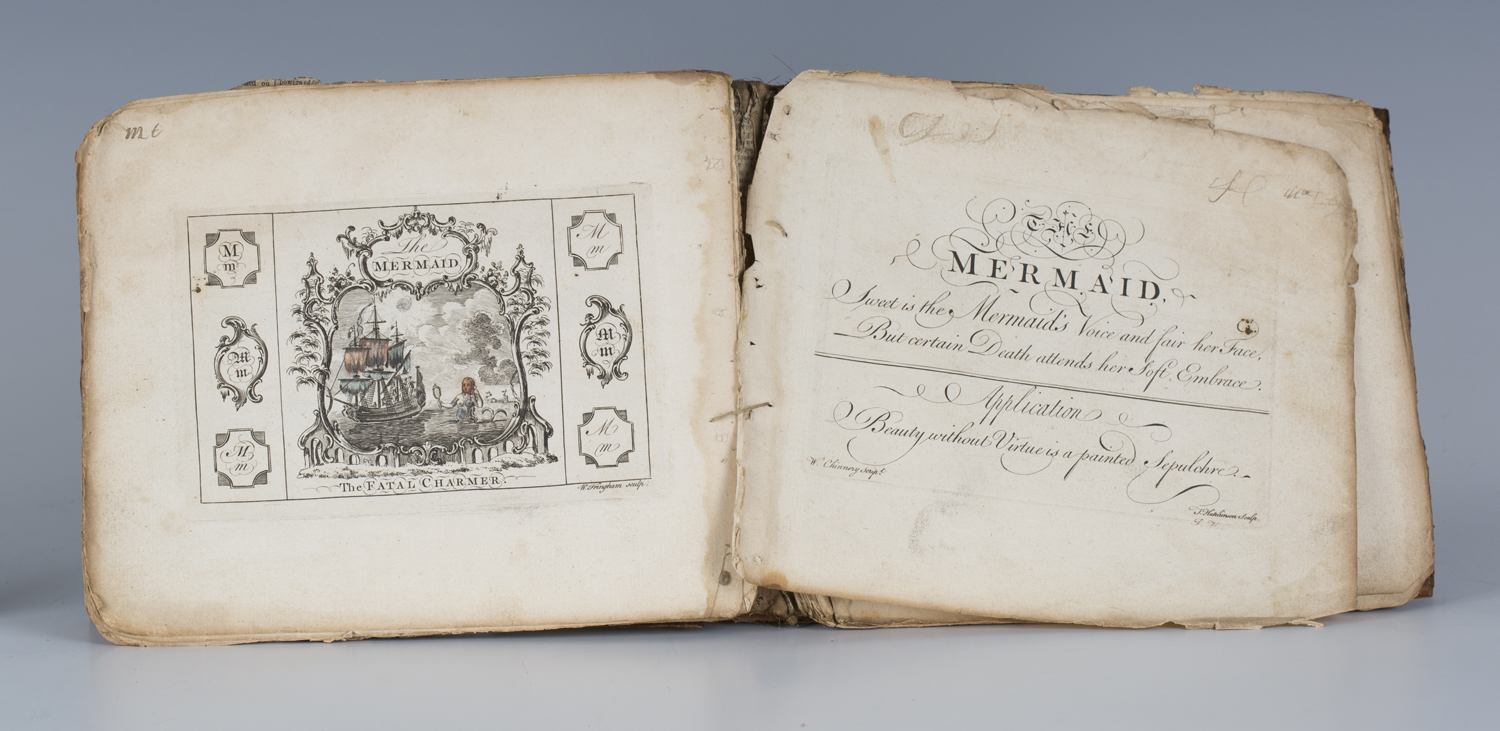 m t
M
m
M
m
M
m
The
MERMAID
M
m
M
m
M
m
The FATAL CHARMER.
W. Fringham sculp.
THE
MERMAID.
Sweet is the Mermaid's Voice and fair her Face,
But certain Death attends her Soft Embrace.
Application
Beauty without Virtue is a painted Sepulchre.
W. Chinnery sculpt.
T. Hutchinson Sculp.